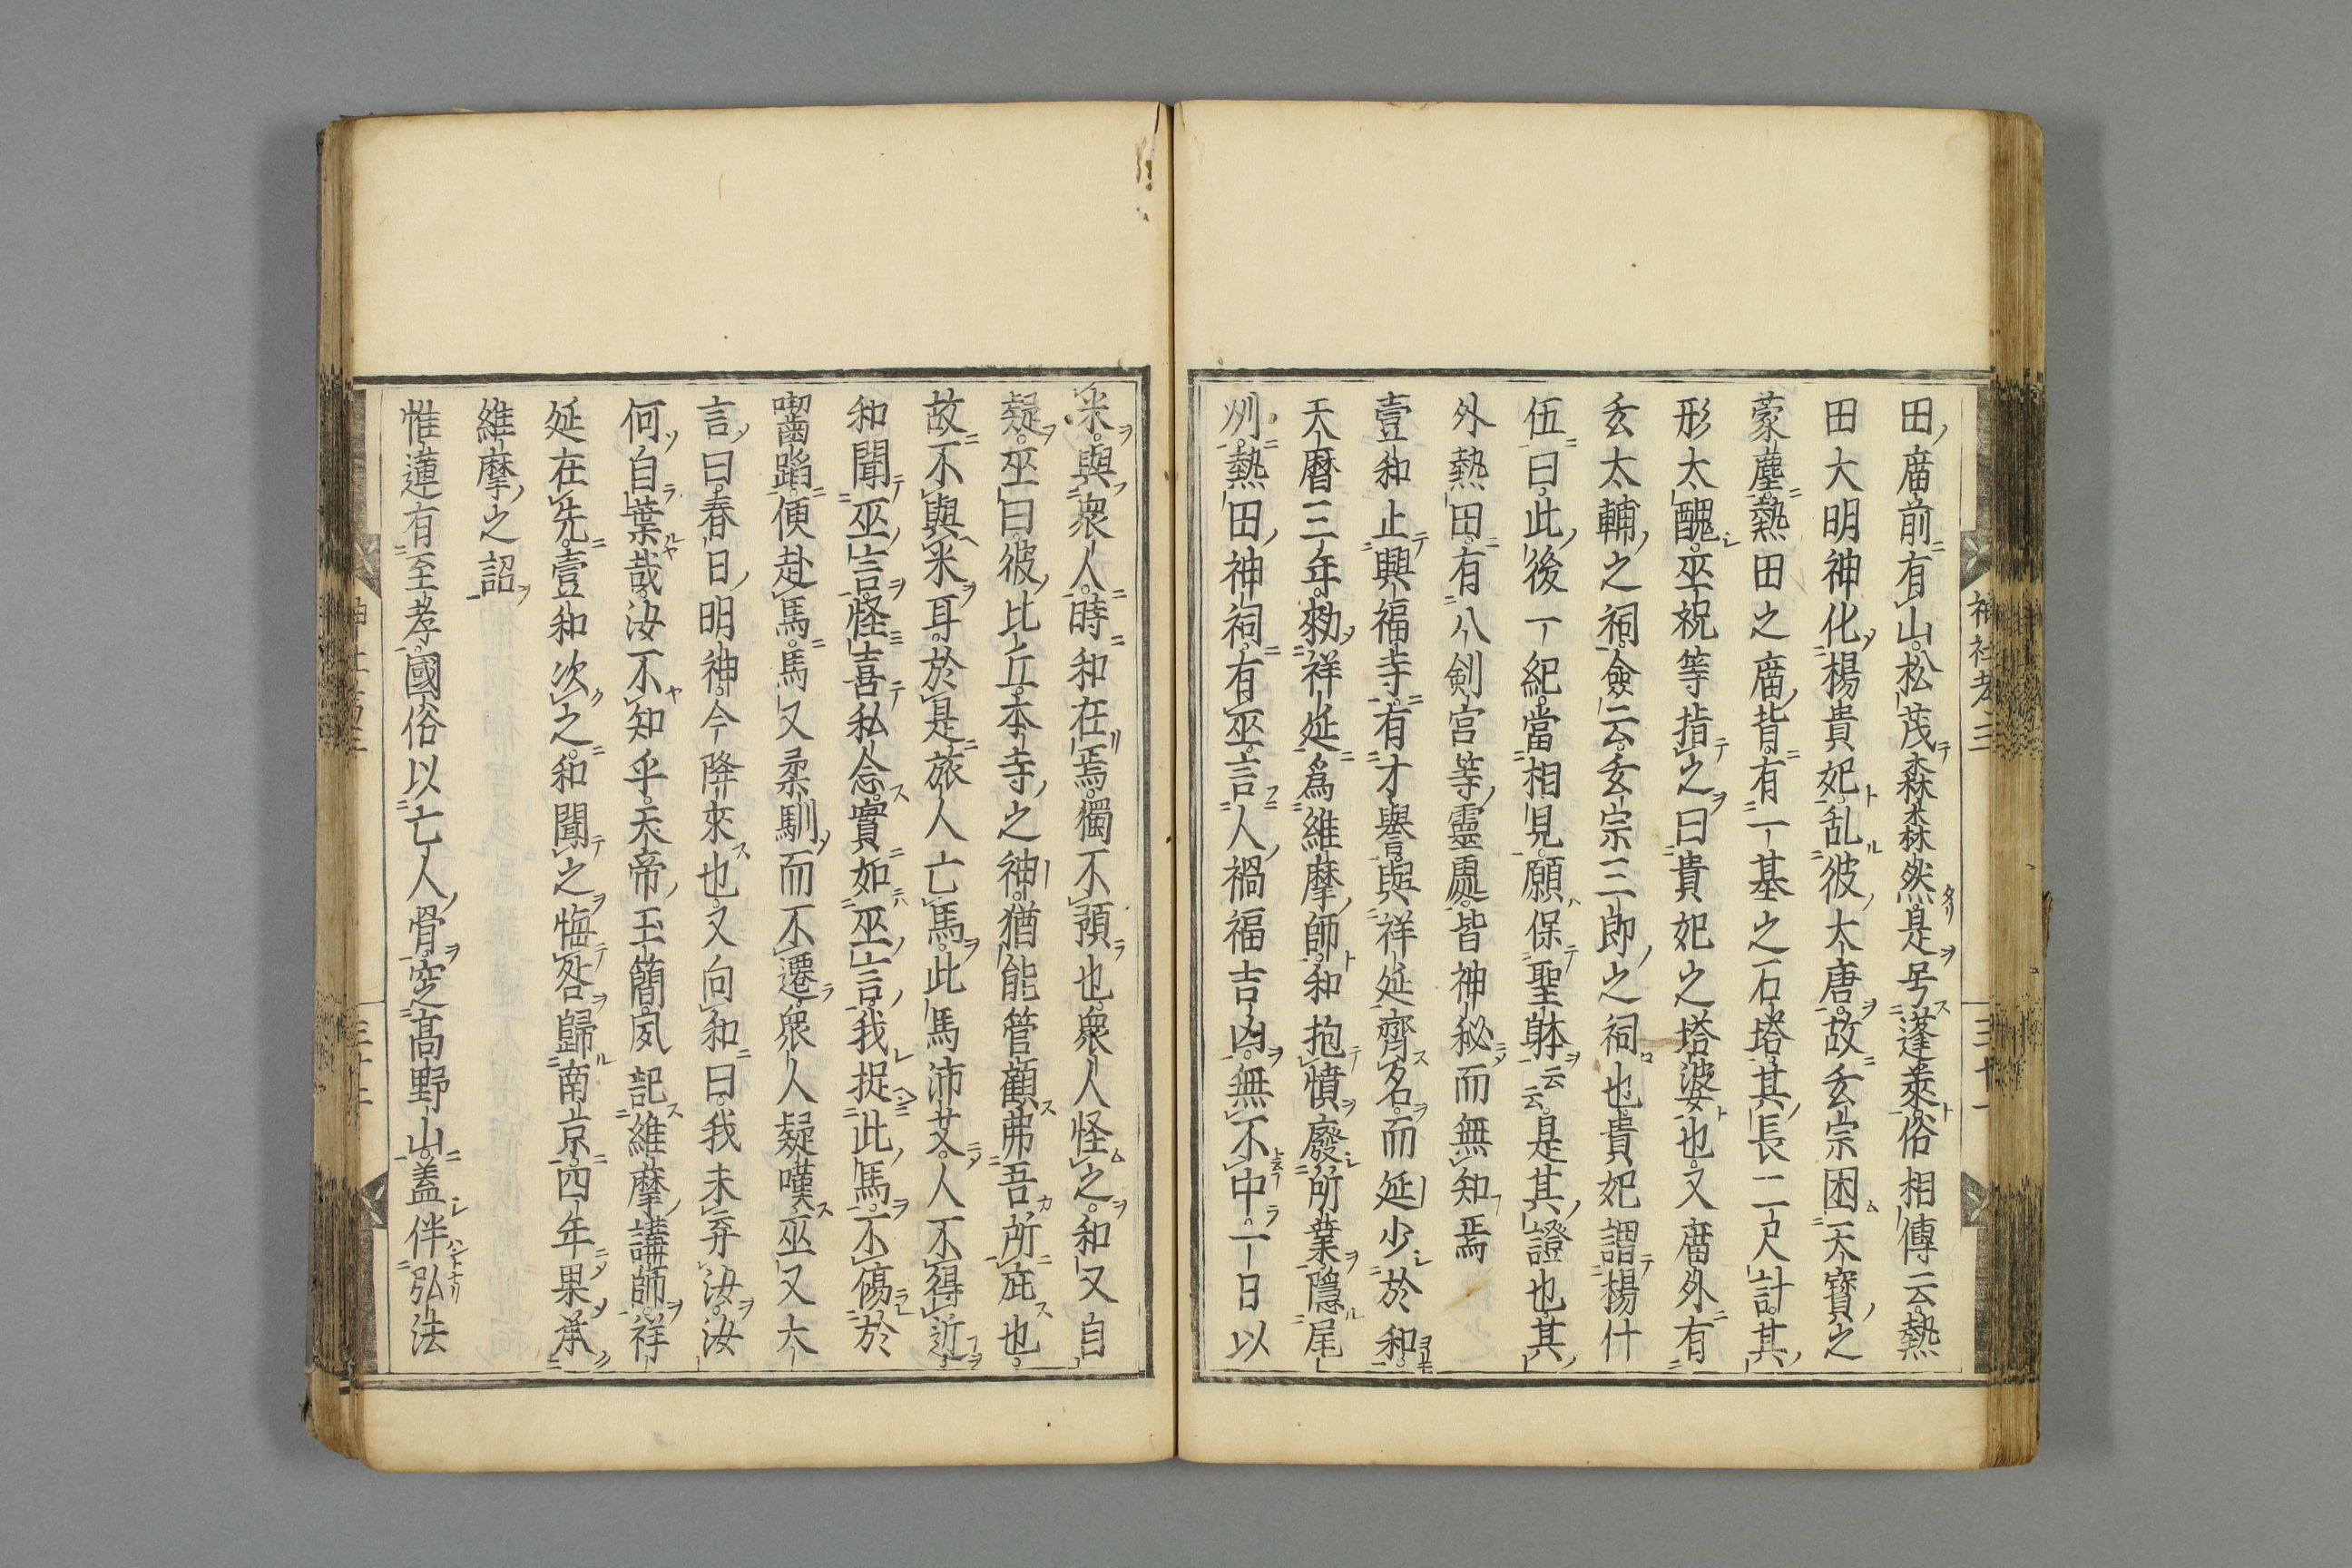 田廟前有山松茂森森然是号蓬萊俗相傳云熱
田大明神化楊貴妃乱彼大唐故玄宗困天寶之
蒙塵熱田之廟背有一基之石塔其長二尺計其
形太醜巫祝等指之曰貴妃之塔婆也又廟外有
玄太輔之祠僉云玄宗三郎之祠也貴妃謂楊什
伍曰此後一紀當相見願保聖躰云云是其證也其
外熱田有八剣宮等靈處皆神秘而無知焉
壹和止興福寺有才譽與祥延齊名而延少於和
天曆三年勑祥延為維摩師和抱憤廢所業隱尾
州熱田神祠有巫言人禍福吉凶無不中一日以
米與衆人時和在焉獨不預也衆人怪之和又自
疑巫曰彼比丘本寺之神猶能管顧弗吾所庇也
故不與米耳於是旅人亡馬此馬沛艾人不得近
和聞巫言怪喜私念實如巫言我捉此馬不傷於
囓蹈便赴馬馬又柔馴而不遷衆人疑嘆巫又大
言曰春日明神今降來也又向和曰我未弃汝汝
何自棄哉汝不知乎天帝玉簡夙記維摩講師祥
延在先壹和次之和聞之悔咎歸南京四年果承
維摩之詔
惟蓮有至孝國俗以亡人骨窆高野山蓋伴弘法
神社考三
三十一